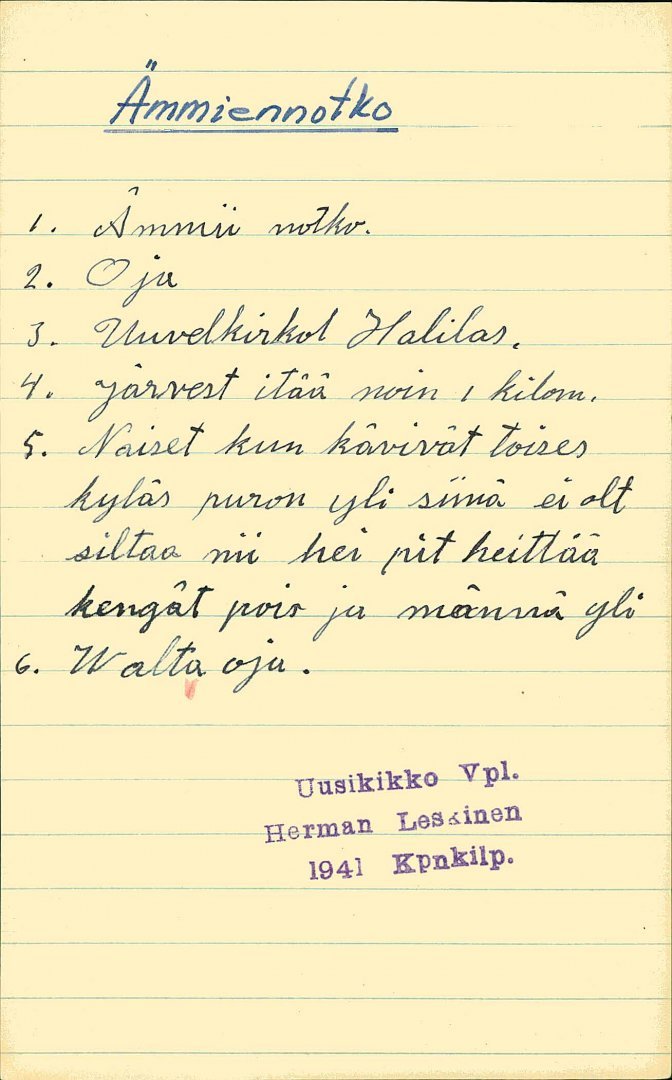 Ämmiennotko
1. Ämmii notko.
2. Oja
3. Uuvelkirkol Halilas.
4. järvest itää noin 1 kilom.
5. Naiset kun kävivät toises
kyläs puron yli siinä ei olt
siltaa nii hei pit heittää
kengät pois ja männä yli
6. Walta oja.
Uusikikko Vpl.
Herman Leskinen
1941 Kpnkilp.